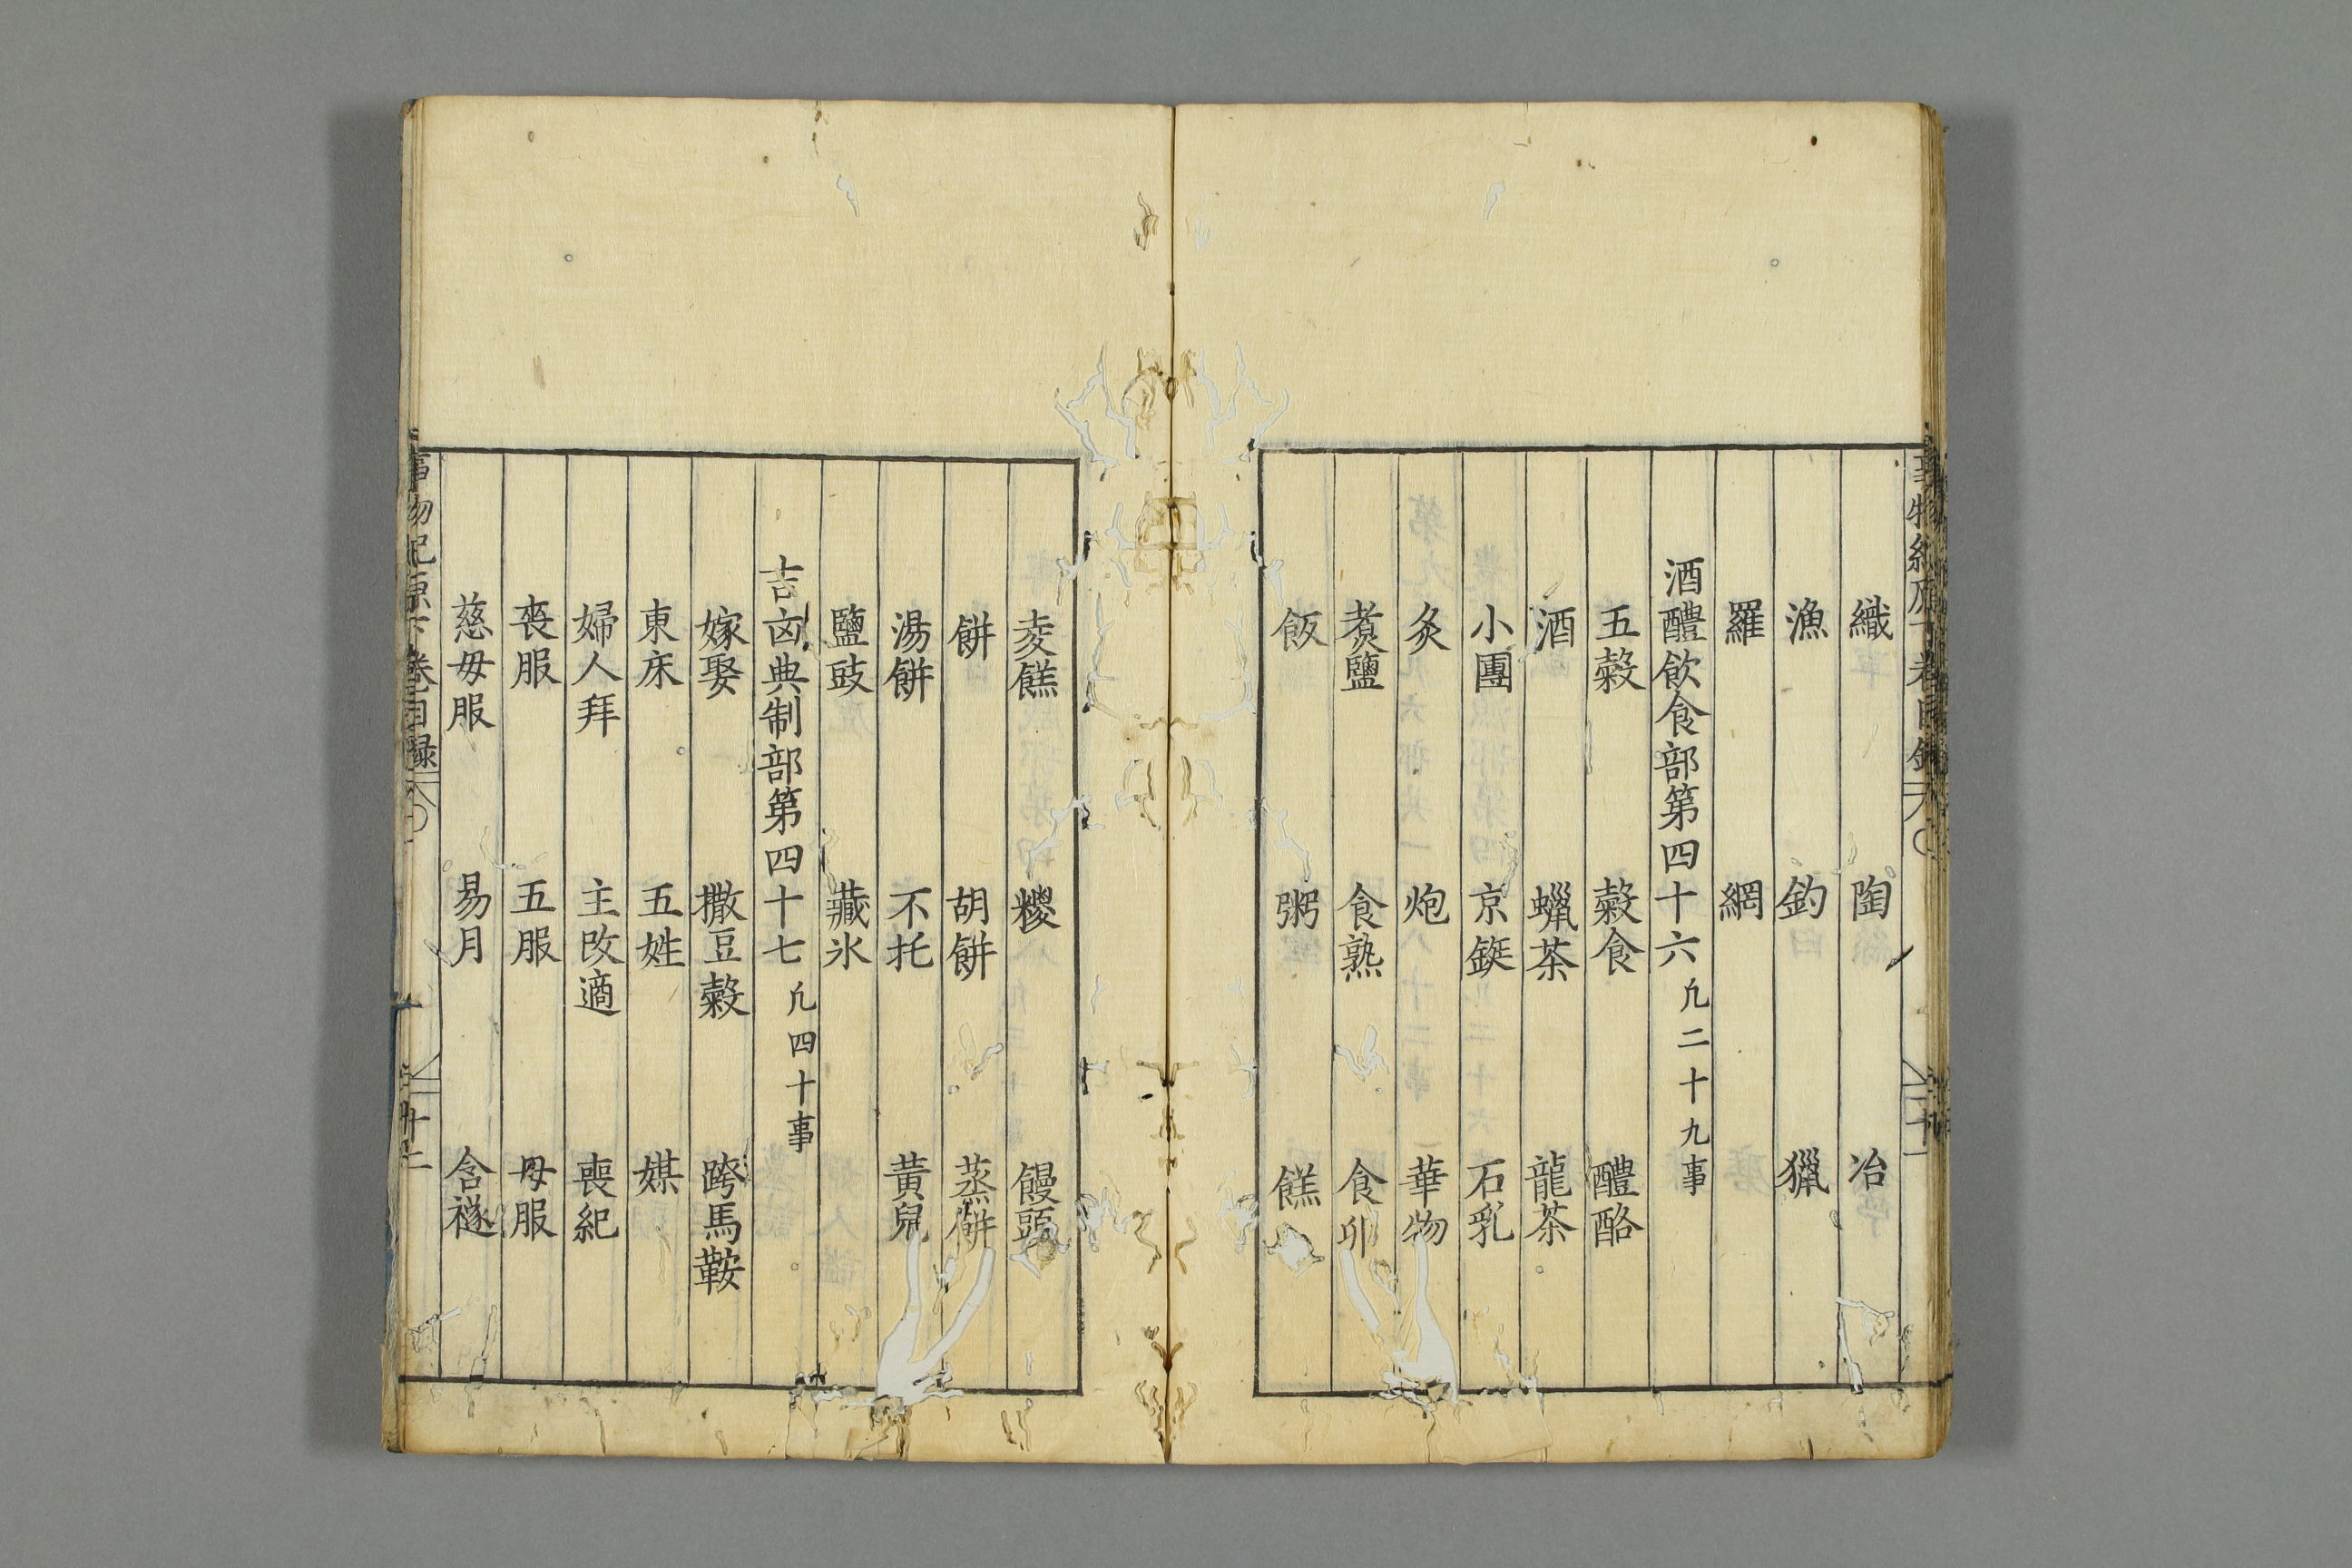 織 陶 冶
漁 釣 獵
羅 網
酒醴飲食部第四十六 凢二十九事
五穀 穀食 醴酪
酒 蠟茶 龍茶
小團 京鋌 石乳
炙 炮 華物
煑鹽 食熟 食卵
飯 粥 餻
麦餻 糉 饅頭
餅 胡餅 蒸餅
湯餅 不托 黃兒
鹽豉 藏氷
吉凶典制部第四十七 凢四十事
嫁娶 撒豆穀 跨馬鞍
東床 五姓 媒
婦人拜 主改適 喪紀
喪服 五服 母服
慈母服 易月 含襚
事物紀原下卷目録